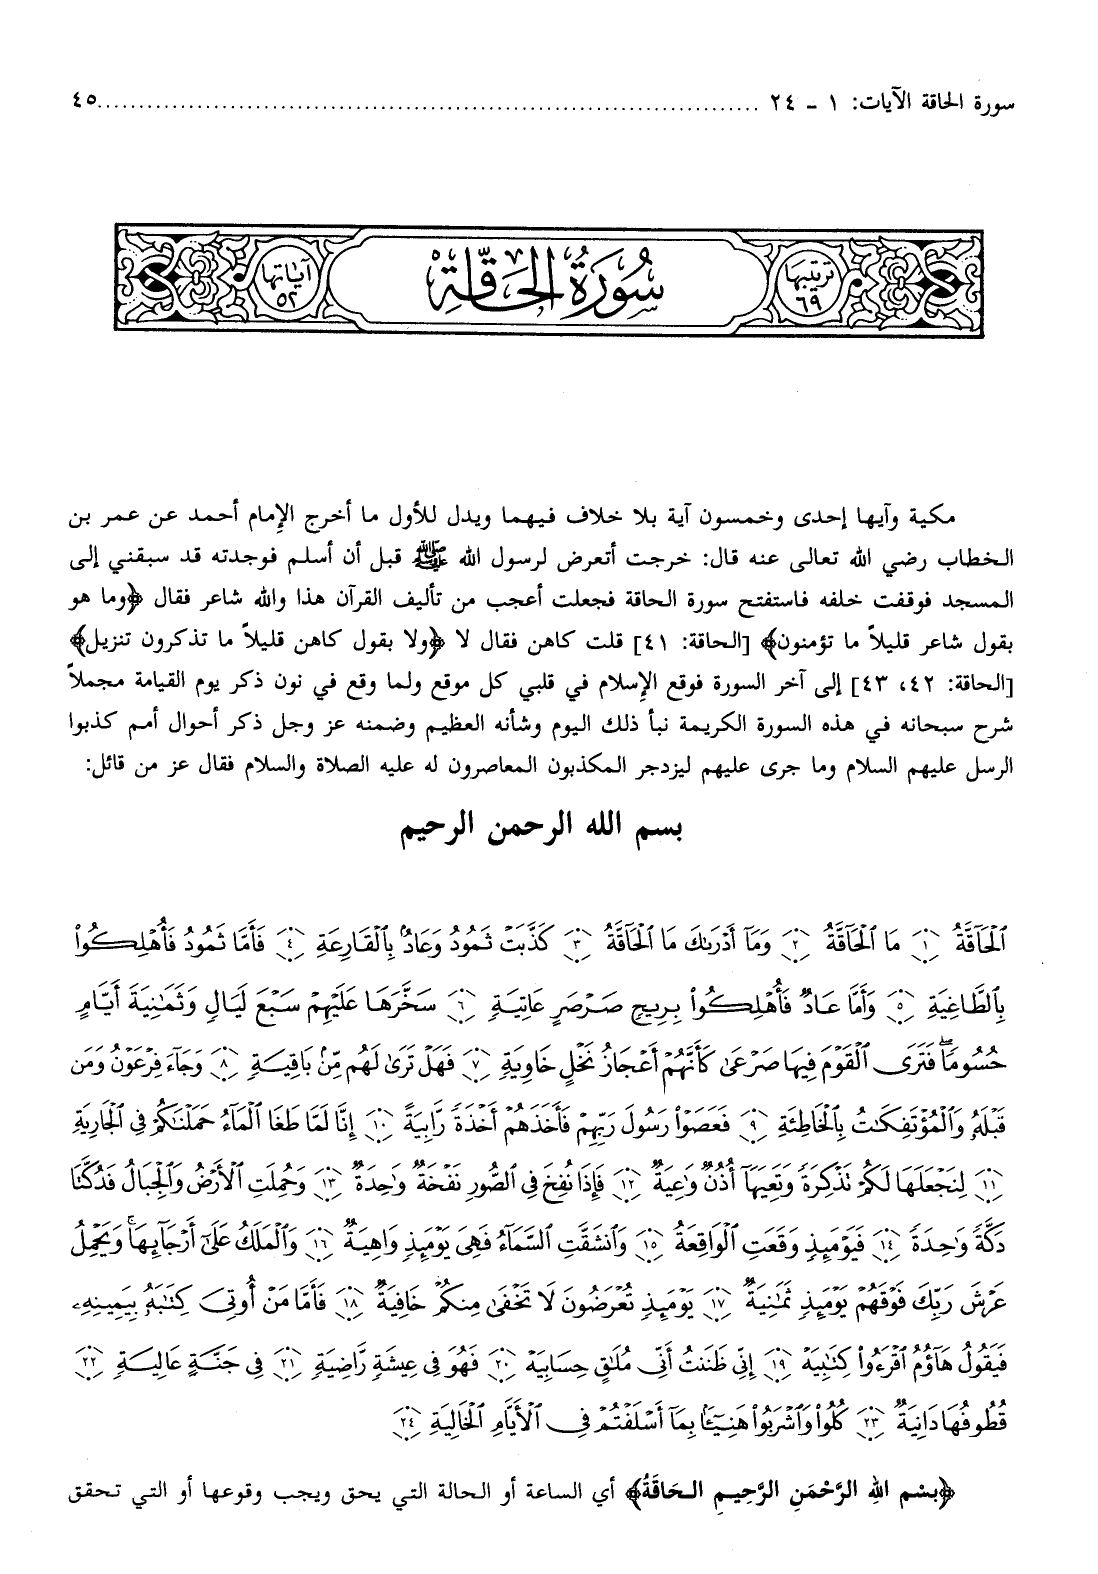 سورة الحاقة الآيات: ١ - ٢٤ ................................................................................................ ٤٥
ترتيبها ٦٩ سُورَةُ الحَاقَّةِ آياتها ٥٢
مكية وآيها إحدى وخمسون آية بلا خلاف فيهما ويدل للأول ما أخرج الإمام أحمد عن عمر بن
الخطاب رضي الله تعالى عنه قال: خرجت أتعرض لرسول الله ﷺ قبل أن أسلم فوجدته قد سبقني إلى
المسجد فوقفت خلفه فاستفتح سورة الحاقة فجعلت أعجب من تأليف القرآن هذا والله شاعر فقال ﴿وما هو
بقول شاعر قليلاً ما تؤمنون﴾ [الحاقة: ٤١] قلت كاهن فقال لا ﴿ولا بقول كاهن قليلاً ما تذكرون تنزيل﴾
[الحاقة: ٤٢، ٤٣] إلى آخر السورة فوقع الإسلام في قلبي كل موقع ولما وقع في نون ذكر يوم القيامة مجملاً
شرح سبحانه في هذه السورة الكريمة نبأ ذلك اليوم وشأنه العظيم وضمنه عز وجل ذكر أحوال أمم كذبوا
الرسل عليهم السلام وما جرى عليهم ليزدجر المكذبون المعاصرون له عليه الصلاة والسلام فقال عز من قائل:
بسم الله الرحمن الرحيم
ٱلْحَآقَّةُ ١ مَا ٱلْحَآقَّةُ ٢ وَمَآ أَدْرَىٰكَ مَا ٱلْحَآقَّةُ ٣ كَذَّبَتْ ثَمُودُ وَعَادٌۢ بِٱلْقَارِعَةِ ٤ فَأَمَّا ثَمُودُ فَأُهْلِكُوا۟
بِٱلطَّاغِيَةِ ٥ وَأَمَّا عَادٌ فَأُهْلِكُوا۟ بِرِيحٍ صَرْصَرٍ عَاتِيَةٍ ٦ سَخَّرَهَا عَلَيْهِمْ سَبْعَ لَيَالٍ وَثَمَٰنِيَةَ أَيَّامٍ
حُسُومًاۖ فَتَرَى ٱلْقَوْمَ فِيهَا صَرْعَىٰ كَأَنَّهُمْ أَعْجَازُ نَخْلٍ خَاوِيَةٍ ٧ فَهَلْ تَرَىٰ لَهُم مِّنۢ بَاقِيَةٍ ٨ وَجَآءَ فِرْعَوْنُ وَمَن
قَبْلَهُۥ وَٱلْمُؤْتَفِكَٰتُ بِٱلْخَاطِئَةِ ٩ فَعَصَوْا۟ رَسُولَ رَبِّهِمْ فَأَخَذَهُمْ أَخْذَةً رَّابِيَةً ١٠ إِنَّا لَمَّا طَغَا ٱلْمَآءُ حَمَلْنَٰكُمْ فِى ٱلْجَارِيَةِ
١١ لِنَجْعَلَهَا لَكُمْ تَذْكِرَةً وَتَعِيَهَآ أُذُنٌ وَٰعِيَةٌ ١٢ فَإِذَا نُفِخَ فِى ٱلصُّورِ نَفْخَةٌ وَٰحِدَةٌ ١٣ وَحُمِلَتِ ٱلْأَرْضُ وَٱلْجِبَالُ فَدُكَّتَا
دَكَّةً وَٰحِدَةً ١٤ فَيَوْمَئِذٍ وَقَعَتِ ٱلْوَاقِعَةُ ١٥ وَٱنشَقَّتِ ٱلسَّمَآءُ فَهِىَ يَوْمَئِذٍ وَاهِيَةٌ ١٦ وَٱلْمَلَكُ عَلَىٰٓ أَرْجَآئِهَاۚ وَيَحْمِلُ
عَرْشَ رَبِّكَ فَوْقَهُمْ يَوْمَئِذٍ ثَمَٰنِيَةٌ ١٧ يَوْمَئِذٍ تُعْرَضُونَ لَا تَخْفَىٰ مِنكُمْ خَافِيَةٌ ١٨ فَأَمَّا مَنْ أُوتِىَ كِتَٰبَهُۥ بِيَمِينِهِۦ
فَيَقُولُ هَآؤُمُ ٱقْرَءُوا۟ كِتَٰبِيَهْ ١٩ إِنِّى ظَنَنتُ أَنِّى مُلَٰقٍ حِسَابِيَهْ ٢٠ فَهُوَ فِى عِيشَةٍ رَّاضِيَةٍ ٢١ فِى جَنَّةٍ عَالِيَةٍ ٢٢
قُطُوفُهَا دَانِيَةٌ ٢٣ كُلُوا۟ وَٱشْرَبُوا۟ هَنِيٓـًٔۢا بِمَآ أَسْلَفْتُمْ فِى ٱلْأَيَّامِ ٱلْخَالِيَةِ ٢٤
﴿بِسْمِ اللهِ الرَّحْمَنِ الرَّحِيمِ الحَاقَةُ﴾ أي الساعة أو الحالة التي يحق ويجب وقوعها أو التي تحقق